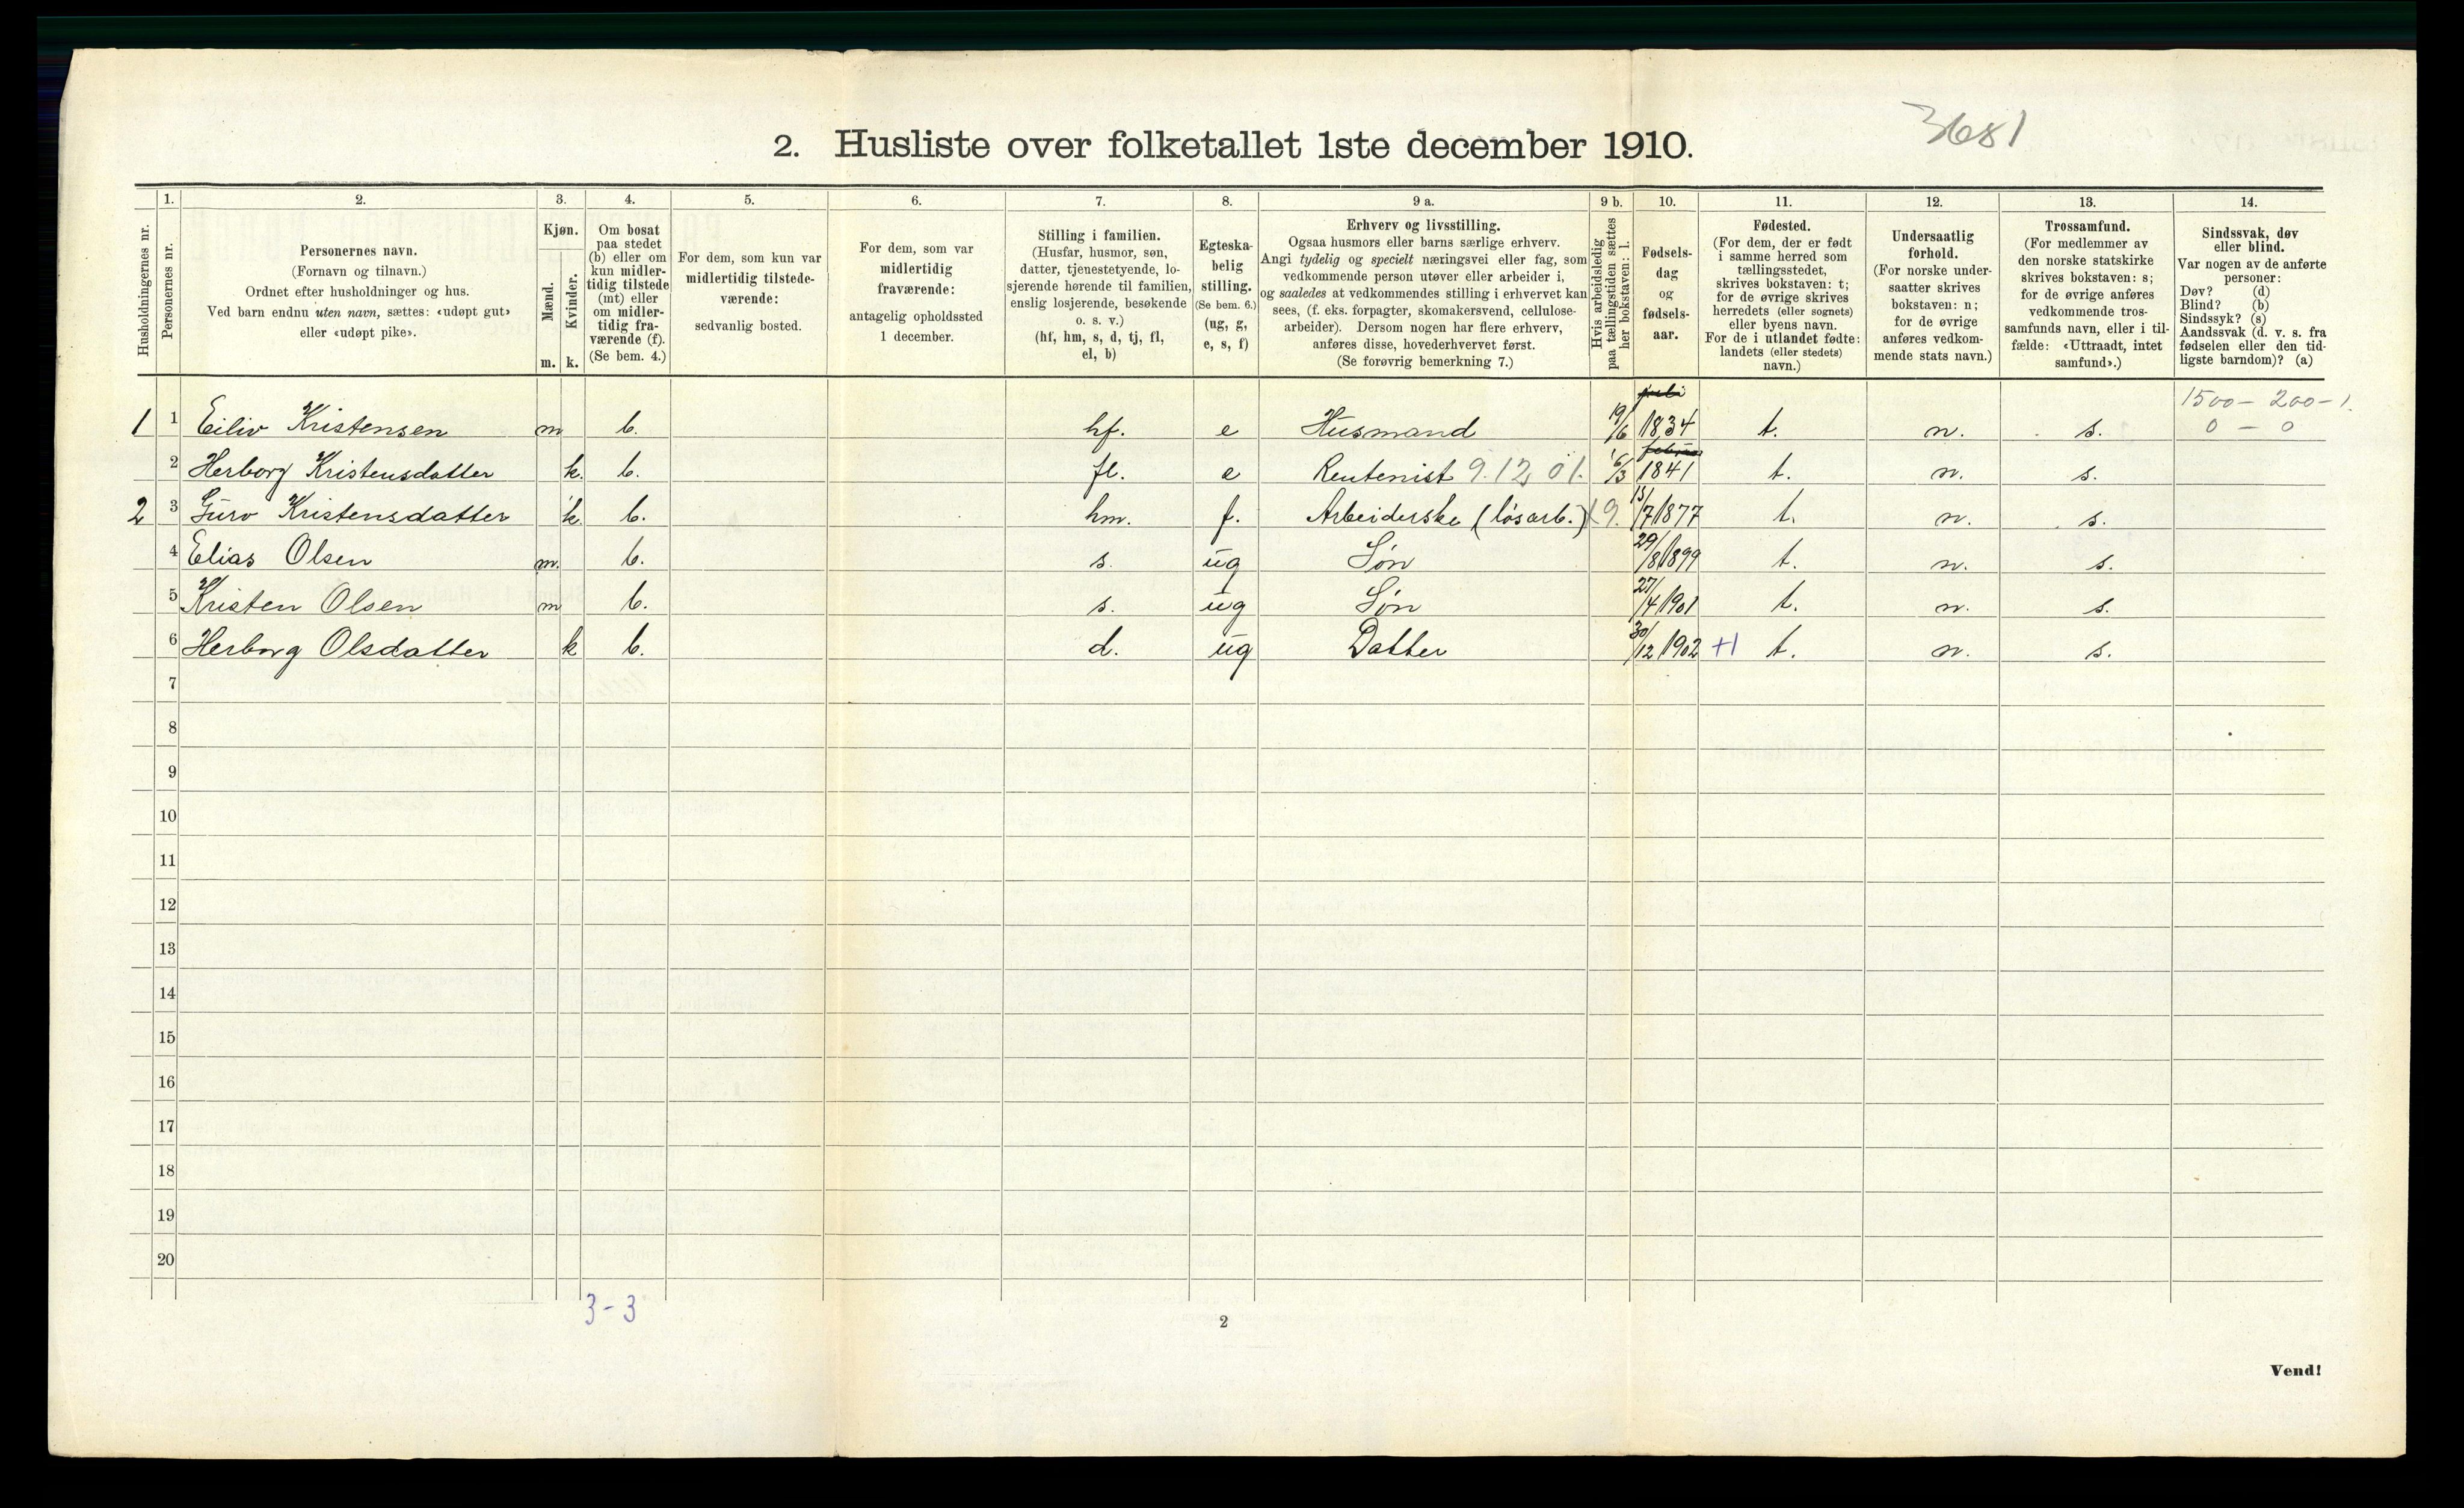 3681
2. Husliste over folketallet 1ste december 1910.
Husholdningernes nr.
1.
Personernes nr.
2.
Personernes navn.
(Fornavn og tilnavn.)
Ordnet efter husholdninger og hus.
Ved barn endnu uten navn, sættes: «udøpt gut»
eller «udøpt pike».
3.
Kjøn.
Mænd.
Kvinder.
m. k.
4.
Om bosat
paa stedet
(b) eller om
kun midler-
tidig tilstede
(mt) eller
om midler-
tidig fra-
værende (f).
(Se bem. 4.)
5.
For dem, som kun var
midlertidig tilstede-
værende:
sedvanlig bosted.
6.
For dem, som var
midlertidig
fraværende:
antagelig opholdssted
1 december.
7.
Stilling i familien.
(Husfar, husmor, søn,
datter, tjenestetyende, lo-
sjerende hørende til familien,
enslig losjerende, besøkende
o. s. v.)
(hf, hm, s, d, tj, fl,
el, b)
8.
Egteska-
belig
stilling.
(Se bem. 6.)
(ug, g,
e, s, f)
9 a.
Erhverv og livsstilling.
Ogsaa husmors eller barns særlige erhverv.
Angi tydelig og specielt næringsvei eller fag, som
vedkommende person utøver eller arbeider i,
og saaledes at vedkommendes stilling i erhvervet kan
sees, (f. eks. forpagter, skomakersvend, cellulose-
arbeider). Dersom nogen har flere erhverv,
anføres disse, hovederhvervet først.
(Se forøvrig bemerkning 7.)
9 b.
Hvis arbeidsledig
paa tællingstiden sættes
her bokstaven: l.
10.
Fødsels-
dag
og
fødsels-
aar.
11.
Fødested.
(For dem, der er født
i samme herred som
tællingsstedet,
skrives bokstaven: t;
for de øvrige skrives
herredets (eller sognets)
eller byens navn.
For de i utlandet fødte:
landets (eller stedets)
navn.)
12.
Undersaatlig
forhold.
(For norske under-
saatter skrives
bokstaven: n;
for de øvrige
anføres vedkom-
mende stats navn.)
13.
Trossamfund.
(For medlemmer av
den norske statskirke
skrives bokstaven: s;
for de øvrige anføres
vedkommende tros-
samfunds navn, eller i til-
fælde: «Uttraadt, intet
samfund».)
14.
Sindssvak, døv
eller blind.
Var nogen av de anførte
personer:
Døv? (d)
Blind? (b)
Sindssyk? (s)
Aandssvak (d. v. s. fra
fødselen eller den tid-
ligste barndom)? (a)
1500 - 200 - 1.
1 1 Eiliv Kristensen m b. hf. e Husmand 19/6 1834 t. n. s. 0 - 0
2 Herborg Kristensdatter k. b. fl. e Rentenist 9.12.01. 6/3 1841 t. n. s.
2 3 Guro Kristensdatter k b. hm. f. Arbeiderske (løsarb.) 9. 13/7 1877 t. n. s.
4 Elias Olsen m. b. s. ug Søn 29/8 1899 t. n. s.
5 Kristen Olsen m b. s. ug Søn 27/4 1901 t. n. s.
6 Herborg Olsdatter k b. d. ug Datter 30/12 1902 +1 t. n. s.
7
8
9
10
11
12
13
14
15
16
17
18
19
20
3-3
2
Vend!